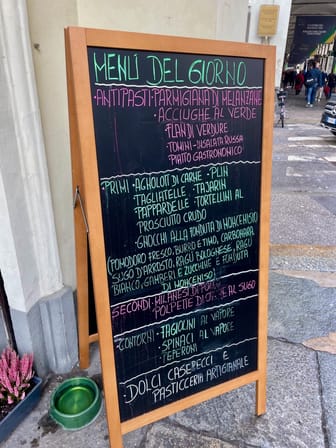 MENÙ DEL GIORNO
•ANTIPASTI•PARMIGIANA DI MELANZANE
ACCIUGHE AL VERDE
FLAN DI VERDURE
TOMINI-INSALATA RUSSA
PIATTO GASTRONOMICO
PRIMI•AGNOLOTTI DI CARNE•PLIN
TAGLIATELLE•TAJARIN
PAPPARDELLE•TORTELLINI AL
PROSCIUTTO CRUDO
•GNOCCHI ALLA FONDUTA DI MONCENISIO
(POMODORO FRESCO, BURRO E TIMO, CARBONARA
SUGO D'ARROSTO, RAGÙ BOLOGNESE, RAGÙ
BIANCO, GAMBERI E ZUCCHINE E FONDUTA
DI MONCENISIO)
SECONDI•MILANESI DI
POLPETTE DI E AL SUGO
•CONTORNI•FAGIOLINI AL VAPORE
SPINACI AL VAPORE
PEPERONI
•DOLCI CASERECCI E
PASTICCERIA ARTIGIANALE